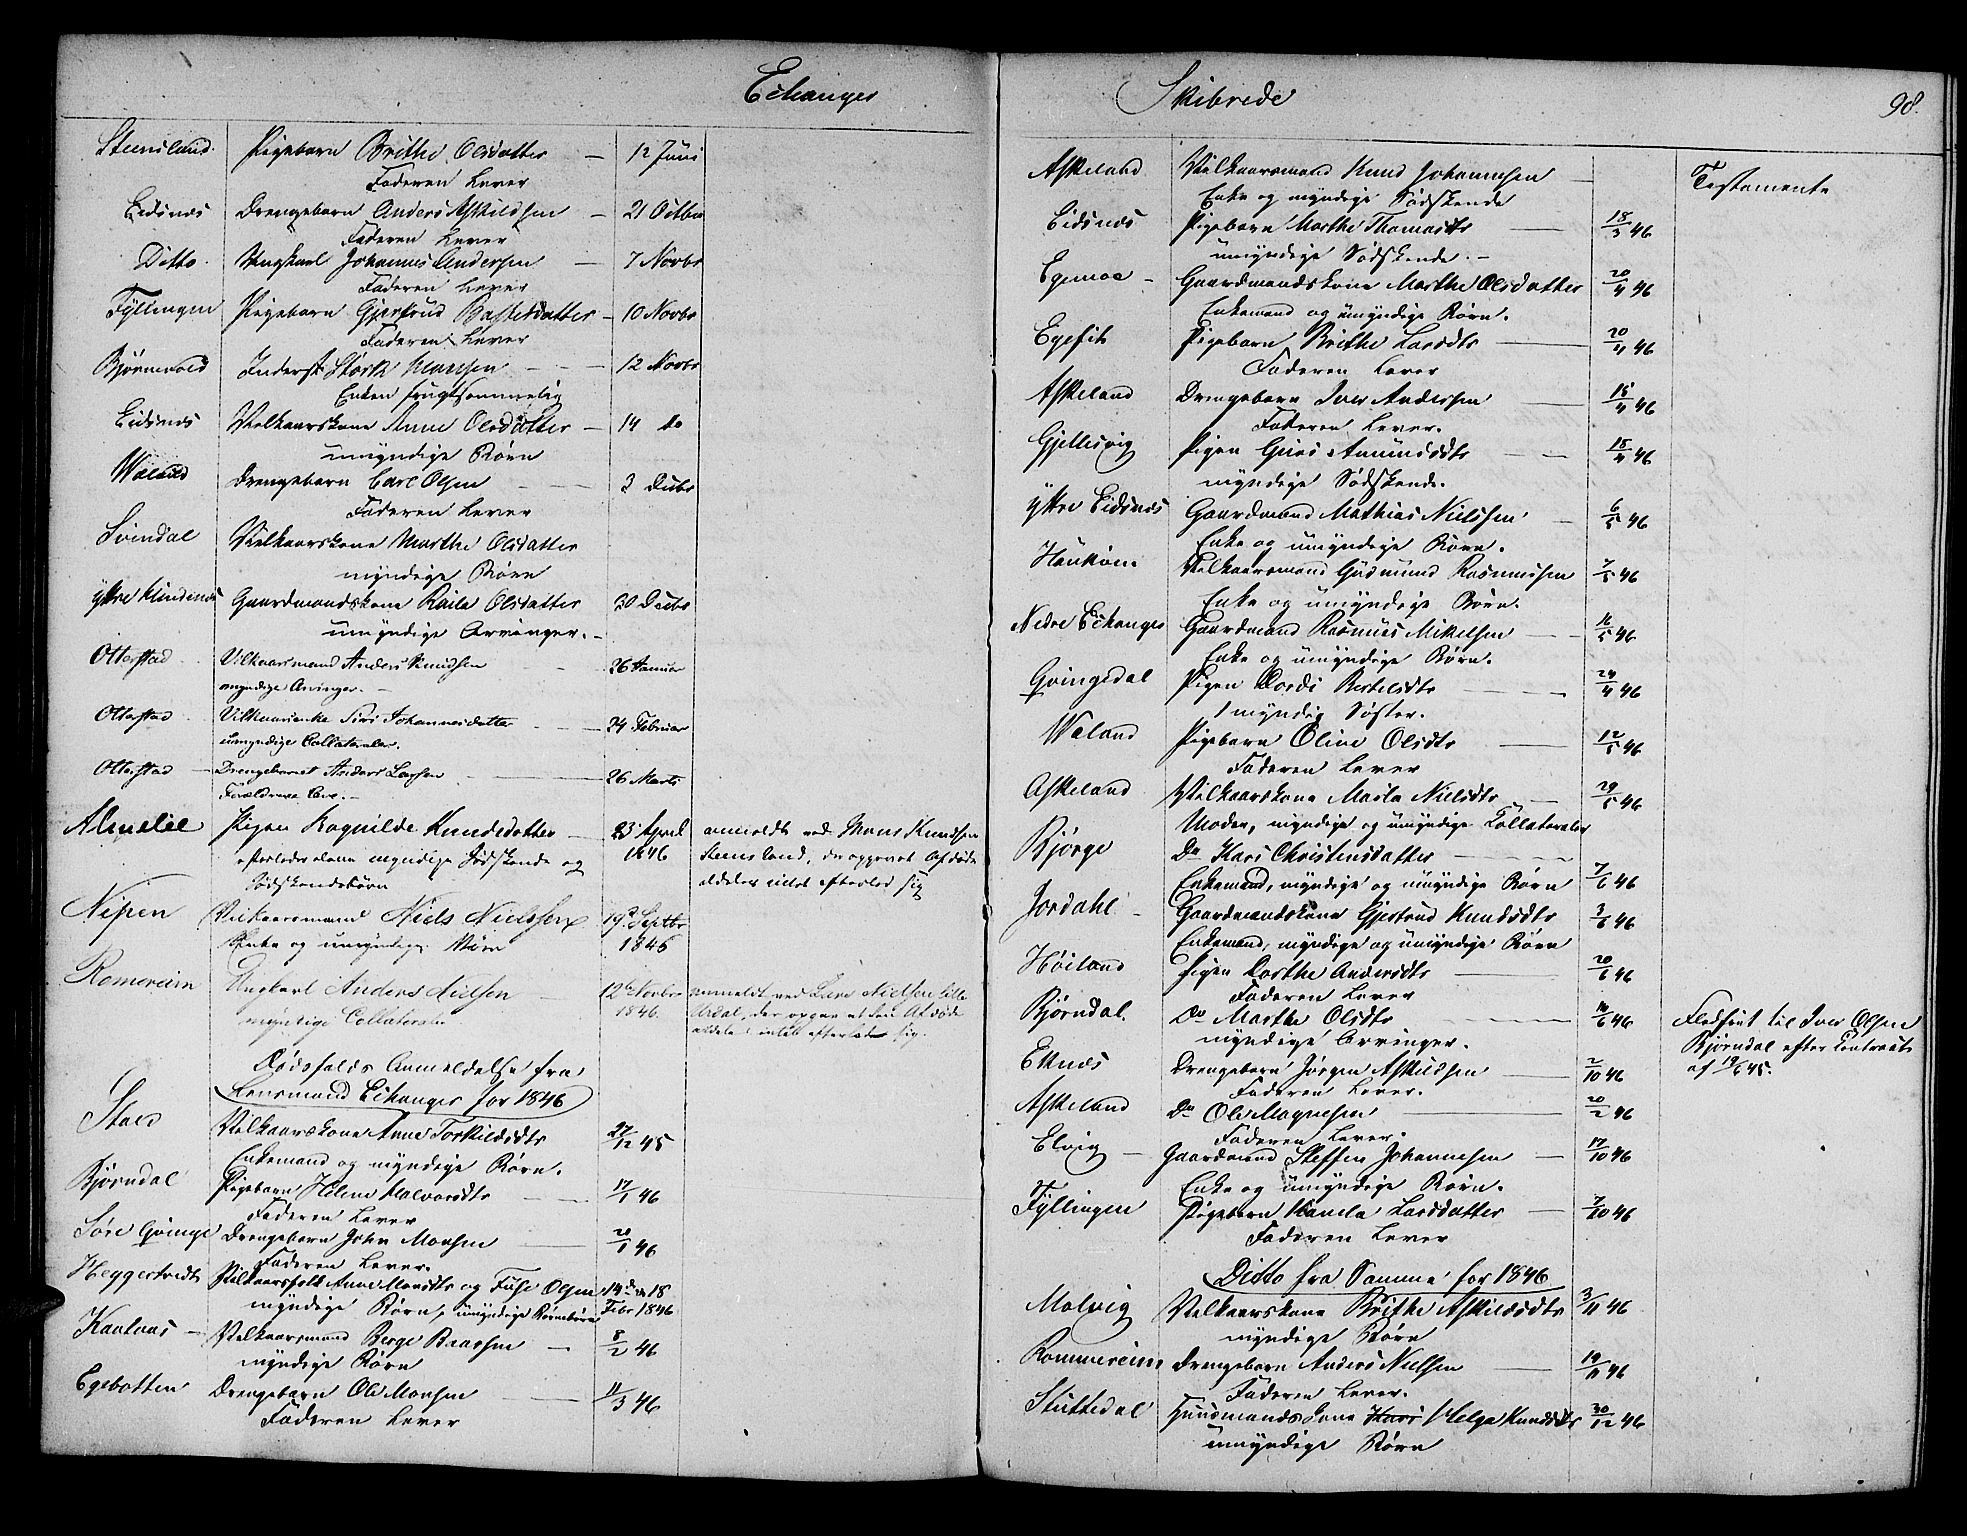 Echanger
Steinsland. Pigebarn Brithe Olsdatter — 12 Juni
Faderen Lever
Eidsnes Drengebarn Anders Askildsen — 21 Octbr
Faderen Lever
Ditto. Ungkarl Johannes Andersen — 7 Novbr
Faderen Lever
Fyllingen Pigebarn Gjertrud Bastesdatter — 10 Novbr
Faderen Lever
Inderst Stork Monsen — 12 Novbr
Enken frugtsommelig
Eidsnes Vilkaarskone Anne Olsdatter — 14 do
umyndige Børn
Waland Drengebarn Carl Olsen — 3 Decbr
Faderen Lever
Svindal Vilkaarskone Marthe Olsdatter
myndige Børn
Ytre Gaardmandskone Raile Olsdatter 20 Decbr
umyndige Arvinger. —
Otterstad Vilkaarsmand Anders Knudsen — 26 Januar
myndige Arvinger. —
Otterstad Vilkaarsenke Siri Johannesdatter — 24 Februar
umyndige Collateraler.
Otterstad — Drengebarnet Anders Larsen — 26 Marts
Forældrene Leve. —
Almelie Pigen Ragnilde Knudsdatter — 23 April
1846 anmeldt ved Mons Knudsen
efterlader alene myndige Sødskende og
Steensland, der opgivet Afdøde
Sødskendebørn
aldeles intet efterlod sig
Nipen Vilkaarsmand Niels Nielssen 19de Septbr
Enke og umyndige Børn 1846
Romereim Ungkarl Anders Nielsen — 12 Novbr anmeldt ved Nielsen Lille
myndige Collateraler 1846.
Urdal, der opgav at den Afdøde
aldeles intet efterlod sig.
Dødsfalds Anmeldelse fra
Lensmand Echanger for 1846
Vilkaarskone Anne Torkildsdtr 27/12 45
Enkemand og myndige Børn.
Bjørndal Pigebarn Helene Halvorsdtr — 17/1 46
Faderen Lever
Søre Qvinge Drengebarn John Monsen — 20/1 46
Faderen Lever.
Heggertvedt Vilkaarsfolk Anne Monsdtr og Fuse Olsen 14de og 18
myndige Børn, umyndige Børnebørn Febr 1846
— Vilkaarsmand Berge Baarsen — 8/2 46
myndige Børn
Egebotten Drengebarn Ole Monsen — 11/3 46
Faderen Lever
Skibrede
98.
Askeland Vilkaarsmand Knud Johannesen — Testamente
Enke og myndige Sødskende
Eidsnes Pigebarn Marthe Thomasdtr — 18/3 46
umyndige Sødskende. —
Egemoe — Gaardmandskone Marthe Olsdatter 20/4 46
Enkemand og umyndige Børn.
Egefit Pigebarn Brithe Larsdtr — 20/4 46
Faderen Lever
Askeland Drengebarn Iver Andersen — 15/4 46
Faderen Lever.
Gjellesvig Pigen Guri Amundsdtr — 18/4 46
myndige Sødskende.
Ytre Eidsnes Gaardmand Mathias Nielssen — 6/5 46
Enke og umyndige Børn.
Vilkaarsmand Gudmund Rasmussen 7/5 46
Enke og umyndige Børn.
Nedre Echanger Gaardmand Rasmus Mikelsen — 16/5 46
Enke og umyndige Børn.
Qvingedal Pigen Dordi Bertelsdtr — 24/4 46
1 myndig Søster.
Waland Pigebarn Oline Olsdtr — 12/5 46
Faderen Lever
Askeland Vilkaarskone Marta Nielsdtr — 29/5 46
Moder, myndige og umyndige Collateraler
Bjørge Do Kari Christensdatter — 7/6 46
Enkemand, myndige og umyndige Børn
Jordahl — Gaardmandskone Gjertrud Knudsdtr 3/6 46
Enkemand, myndige og umyndige Børn
Høiland Pigen Dorthe Andersdtr — 20/6 46
Faderen Lever
Bjørndal. Do Marthe Olsdtr — 14/6 46
Fledført til Iver Olsen
Bjørndal efter Contract
af 19/6 45.
myndige Arvinger.
Eknes Drengebarn Jørgen Askildsen — 2/10 46
Faderen Lever.
Askeland Do Ole Magnesen — 20/2 46
Faderen Lever.
Elvig — Gaardmand Steffen Johannesen — 17/10 46
Enke og umyndige Børn.
Fyllingen Pigebarn Larsdatter — 7/10 46
Faderen Lever
Ditto fra Samme for 1846
Molvig Vilkaarskone Brithe Askildsdtr 3/11 46
myndige Børn
Rommereim Drengebarn Anders Nielsen — 19/11 46
Faderen Lever.
Stuttedal Huusmandskone Kari Helga Knudsdtr 30/12 46
umyndige Børn